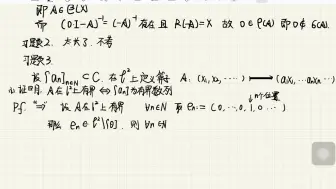 即 A ∈ ℓ(X)
即 (0I-A)⁻¹ = (-A)⁻¹ 存在且 R(-A)=X 故 0∈ρ(A) 即 0∉σ(A).
习题2. 太长了, 不考
习题3.
设 {aₙ}ₙ∈ℕ ⊂ ℂ. 在 ℓ² 上定义算子 A: (x₁, x₂, ⋯) ⟼ (a₁x₁, ⋯ aₙxₙ ⋯)
(1) 证明: A 在 ℓ² 上有界 ⇔ {aₙ} 为有界数列
↓n个位置
Pf: "⇒" 设 A 在 ℓ² 上有界 ∀n∈ℕ 取 eₙ := (0, ⋯, 0, 1, 0 ⋯)
那么 eₙ ∈ ℓ²\{0}. 则 ∀n∈ℕ